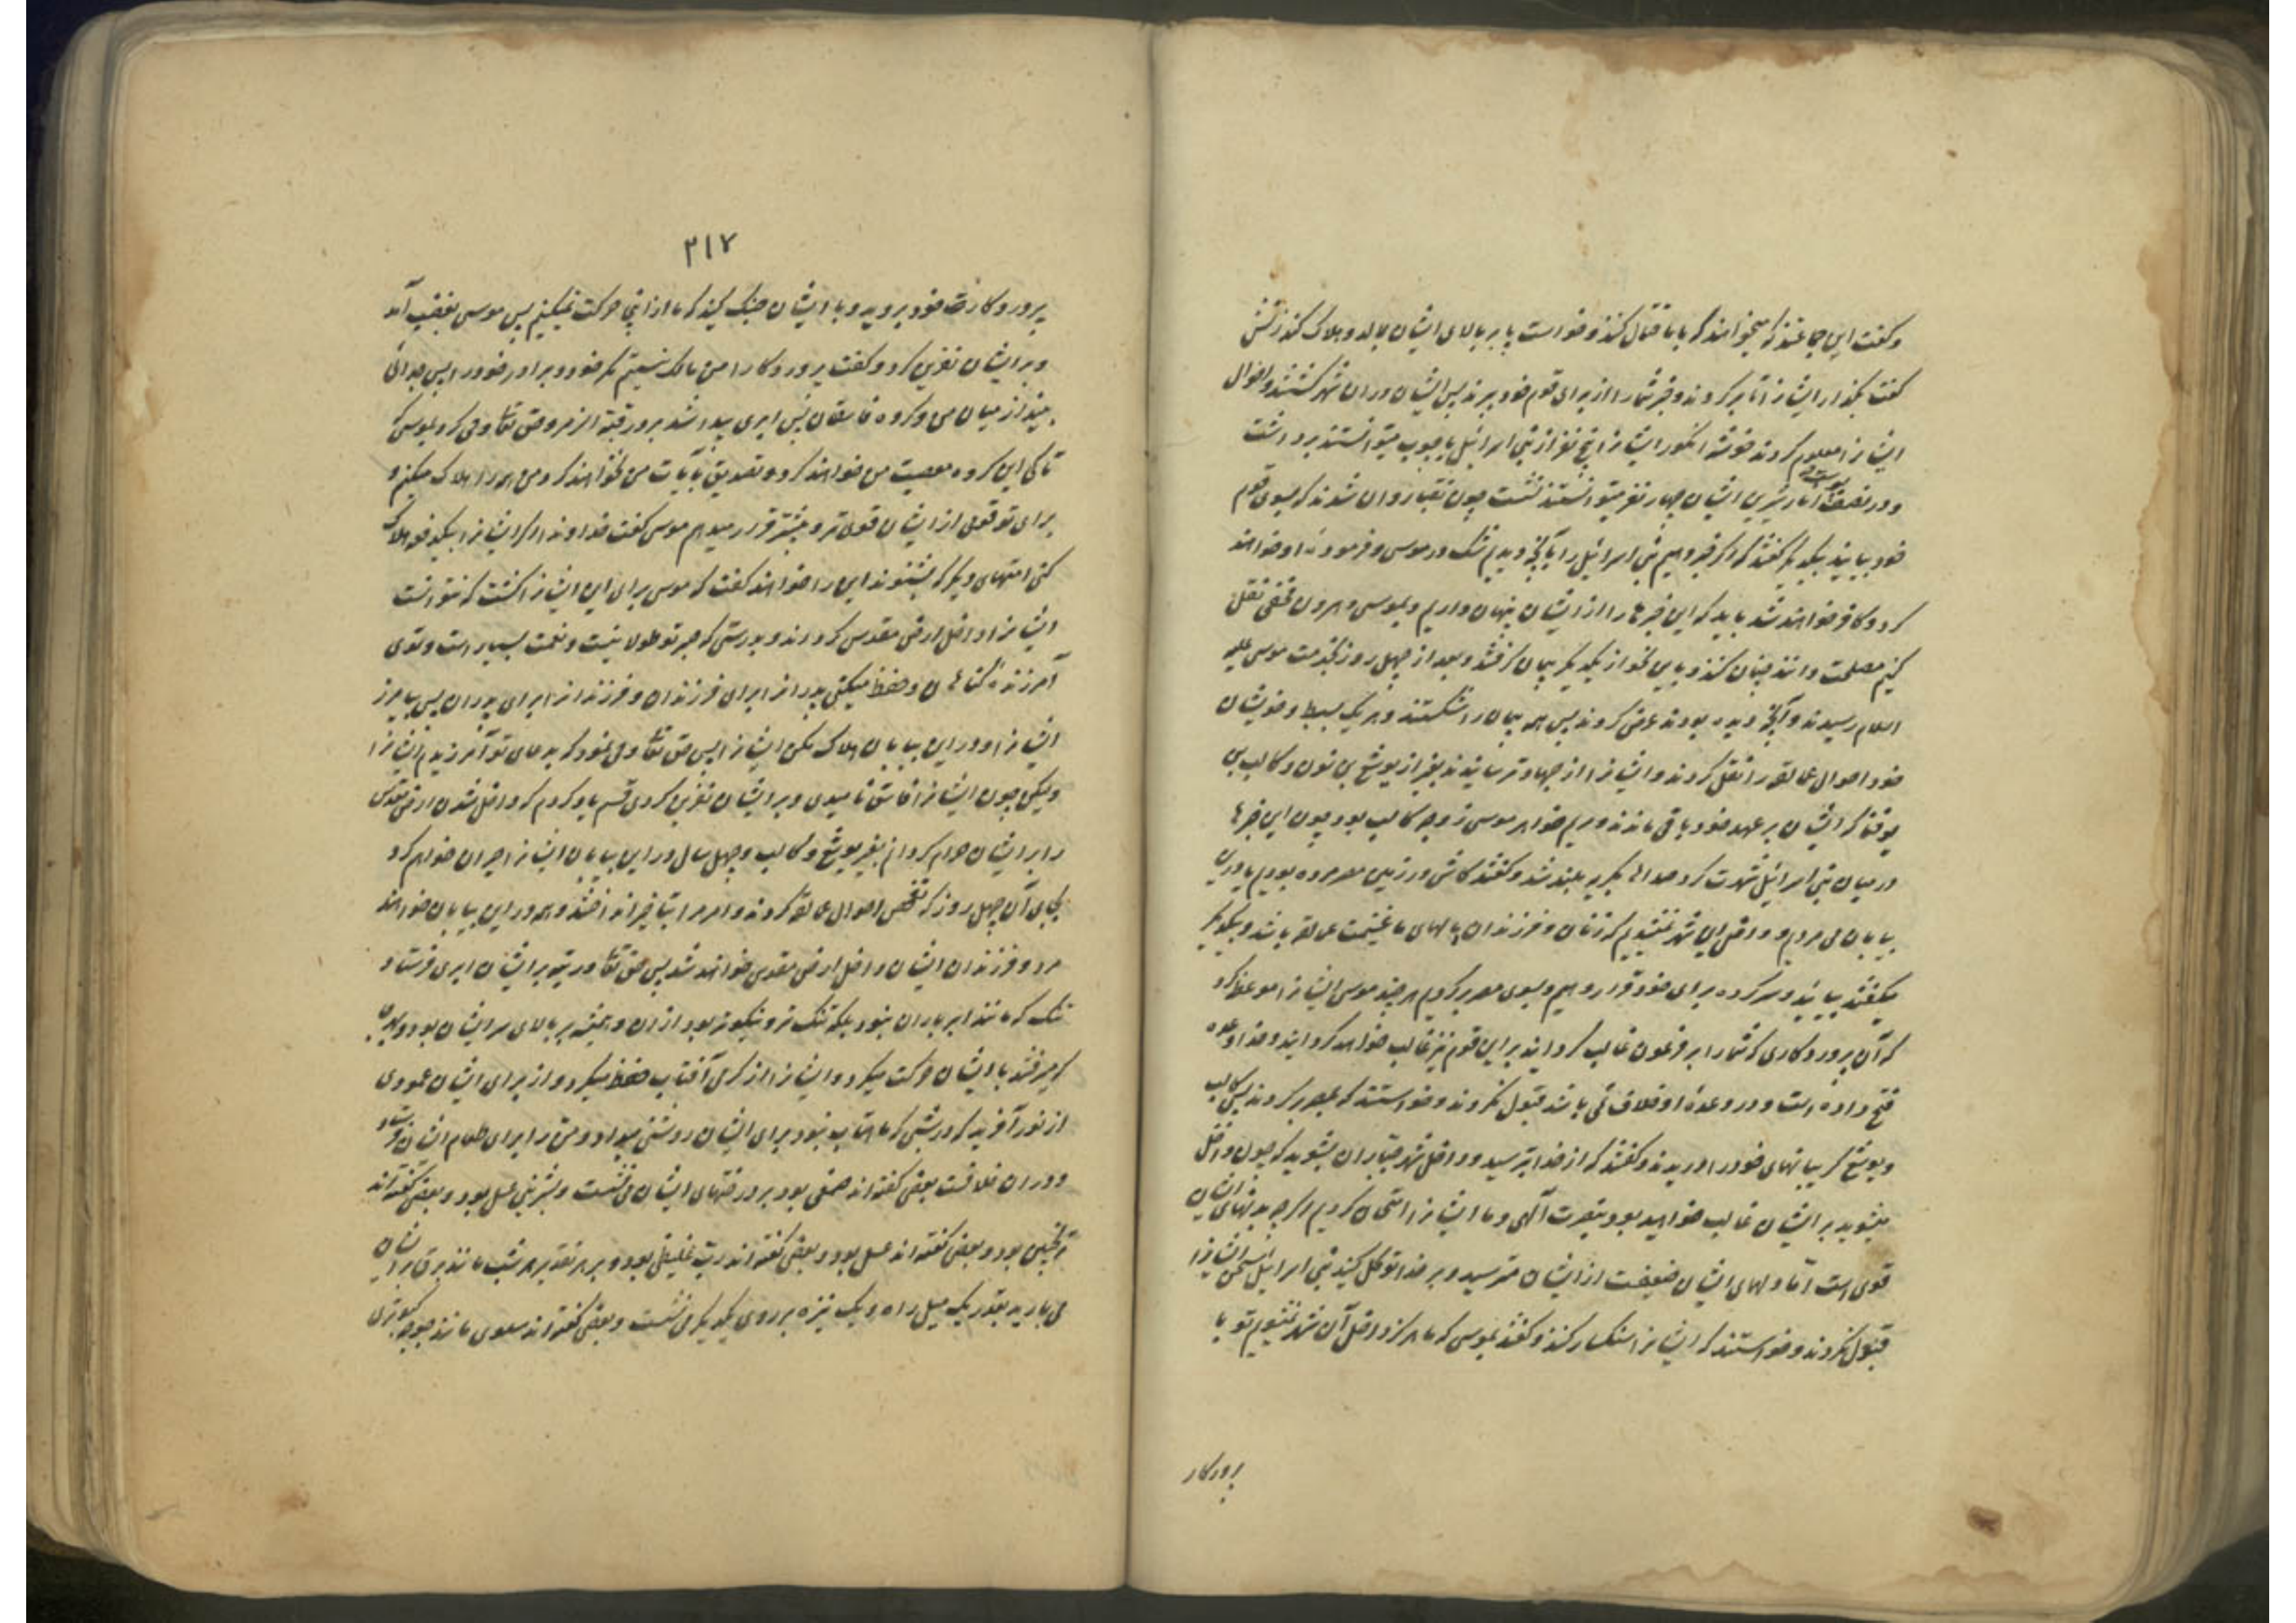 و گفت این جماعتند که میخواهند که با ما قتال کنند و خواست پا بر بالای ایشان بمالد و هلاک کند زنش
گفت بگذار ایشانرا تا برگردند و خبر شما را از برای قوم خود ببرند پس ایشان در ان شهر گشتند و احوال
ایشانرا معلوم کردند خوشه انگور ایشانرا پنج نفر از بنی اسرائیل با چوب میتوانستند برداشت
و در نصف پوست انار ایشان چهار نفر میتوانستند نشست چون نقبا روان شدند که بسوی قوم
خود بیایند بیکدیگر گفتند که اگر خبر دهیم بنی اسرائیل را بآنچه دیدیم شک در موسی و فرموده او خواهند
کرد و کافر خواهند شد باید که این خبرها را از ایشان پنهان داریم و بموسی و هرون مخفی نقل
کنیم مصلحت دانند چنان کنند و باین نحو از یکدیگر پیمان گرفتند و بعد از چهل روز بخدمت موسی علیه
السلام رسیدند و آنچه دیده بودند عرض کردند پس همه پیمان را شکستند و هر یک بسبط و خویشان
خود احوال عمالقه را نقل کردند و ایشانرا از جهاد ترسانیدند بغیر از یوشع بن نون و کالب بن
یوقنا که ایشان بر عهد خود باقی ماندند و مریم خواهر موسی زوجه کالب بود چون این خبرها
در میان بنی اسرائیل شهرت کرد صداها بگریه بلند شد و گفتند کاش در زمین مصر مرده بودیم یا در این
بیابان می مردیم و داخل این شهر نمیشدیم که زنان و فرزندان و مالهای ما غنیمت عمالقه باشد و بیکدیگر
میگفتند بیائید و سرکرده برای خود قرار دهیم و بسوی مصر برگردیم هر چند موسی ایشانرا موعظه کرد
که آن پروردگاری که شما را بر فرعون غالب گردانید بر این قوم نیز غالب خواهد گردانید و خدا وعده
فتح داده است و در وعده او خلاف نمی باشد قبول نکردند و خواستند که بمصر برگردند پس کالب
و یوشع گریبانهای خود را دریدند و گفتند که از خدا بترسید و داخل شهر جباران بشوید که چون داخل
میشوید بر ایشان غالب خواهید بود بنصرت آلهی و ما ایشانرا امتحان کردیم اگر چه بدنهای ایشان
قوی است اما دلهای ایشان ضعیفست از ایشان مترسید و بر خدا توکل کنید بنی اسرائیل سخن ایشانرا
قبول نکردند و خواستند که ایشانرا سنگسار کنند و گفتند بموسی که ما هرگز داخل آن شهر نمیشویم تو با
پروردکار
۲۱۷
پروردکارت خود بروید و با ایشان جنگ کنید که ما از اینجا حرکت نمیکنیم پس موسی بغضب آمد
و بر ایشان نفرین کرد و گفت پروردکارا من مالک نیستم مگر خود و برادر خود را پس جدائی
بینداز میان من و گروه فاسقان پس ابری پیدا شد بر در قبة الزمر و حق تعالی وحی کرد بموسی که
تا کی این گروه معصیت من خواهند کرد و تصدیق بآیات من نخواهند کرد من همه را هلاک میکنم و
برای تو قومی از ایشان قوی تر و بیشتر قرار میدهم موسی گفت خداوندا اگر ایشانرا بیکدفعه هلاک
کنی امتهای دیگر که بشنوند این را خواهند گفت که موسی برای این ایشانرا کشت که نتوانست
ایشانرا داخل ارض مقدس گرداند و بدرستی که صبر تو طولانیست و نعمت بسیار است و توئی
آمرزنده گناهان و حفظ میکنی پدرانرا برای فرزندان و فرزندانرا برای پدران پس بیامرز
ایشانرا و در این بیابان هلاک مکن ایشانرا پس حق تعالی وحی نمود که بدعای تو آمرزیدم ایشانرا
ولیکن چون ایشانرا فاسق نامیدی و بر ایشان نفرین کردی قسم یاد کردم که داخل شدن ارض مقدس
را بر ایشان حرام گردانم بغیر یوشع و کالب و چهل سال در این بیابان ایشانرا حیران خواهم کرد
بجای آن چهل روز که تفحص احوال عمالقه کردند و امر مرا بتاخیر انداختند و همه در این بیابان خواهند
مرد و فرزندان ایشان داخل ارض مقدس خواهند شد پس حق تعالی در تیه بر ایشان ابری فرستاد
تنک که مانند ابر باران نبود بلکه تنک تر و نیکوتر بود از ان و همیشه بر بالای سر ایشان بود و بهر جا
که میرفتند با ایشان حرکت میکرد و ایشانرا از گرمی آفتاب حفظ میکرد و از برای ایشان عمودی
از نور آفرید که در شبی که ماهتاب نبود برای ایشان روشنی میداد و من را برای طعام ایشان فرستاد
و در ان خلافست بعضی گفته اند صمغی بود بر درختهای ایشان می نشست و بشیرینی عسل بود و بعضی گفته اند
ترنجبین بود و بعضی گفته اند عسل بود و بعضی گفته اند رب غلیظی بود و بر هر تقدیر هر شب مانند برف بر ایشان
می بارید بقدر یک میل راه و یک نیزه بر روی یکدیگر می نشست و بعضی گفته اند سلوی مانند جوجه کبوتری